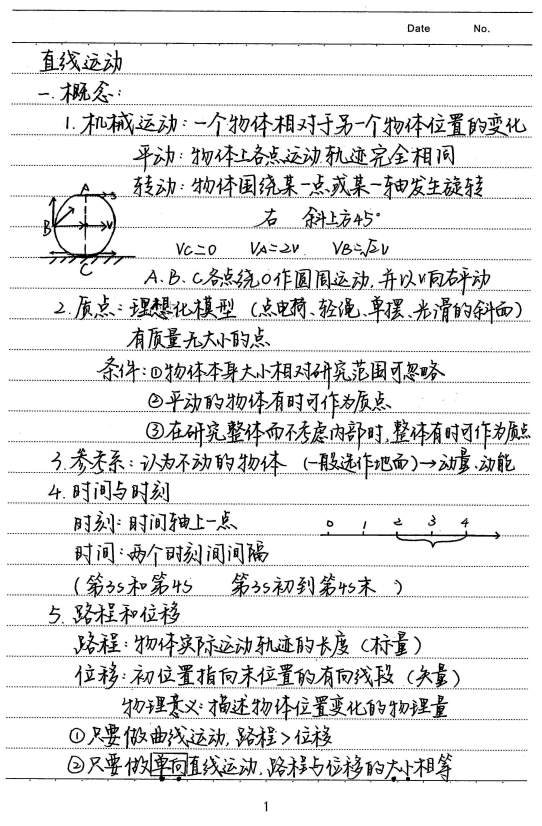 Date No.
直线运动
一.概念:
1.机械运动:一个物体相对于另一个物体位置的变化
平动:物体上各点运动轨迹完全相同
转动:物体围绕某一点或某一轴发生旋转
A
B
V
C
右 斜上方45°
Vc=0 VA=2V VB=√2V
A.B.C各点绕O作圆周运动,并以V向右平动
2.质点:理想化模型(点电荷、轻绳、单摆、光滑的斜面)
有质量无大小的点
条件:①物体本身大小相对研究范围可忽略
②平动的物体有时可作为质点
③在研究整体而不考虑内部时,整体有时可作为质点
3.参考系:认为不动的物体(一般选作地面)→动量.动能
4.时间与时刻
时刻:时间轴上一点
0 1 2 3 4
时间:两个时刻间间隔
(第3S和第4S 第3S初到第4S末)
5.路程和位移
路程:物体实际运动轨迹的长度(标量)
位移:初位置指向末位置的有向线段(矢量)
物理意义:描述物体位置变化的物理量
①只要做曲线运动,路程>位移
②只要做单向直线运动,路程与位移的大小相等
1